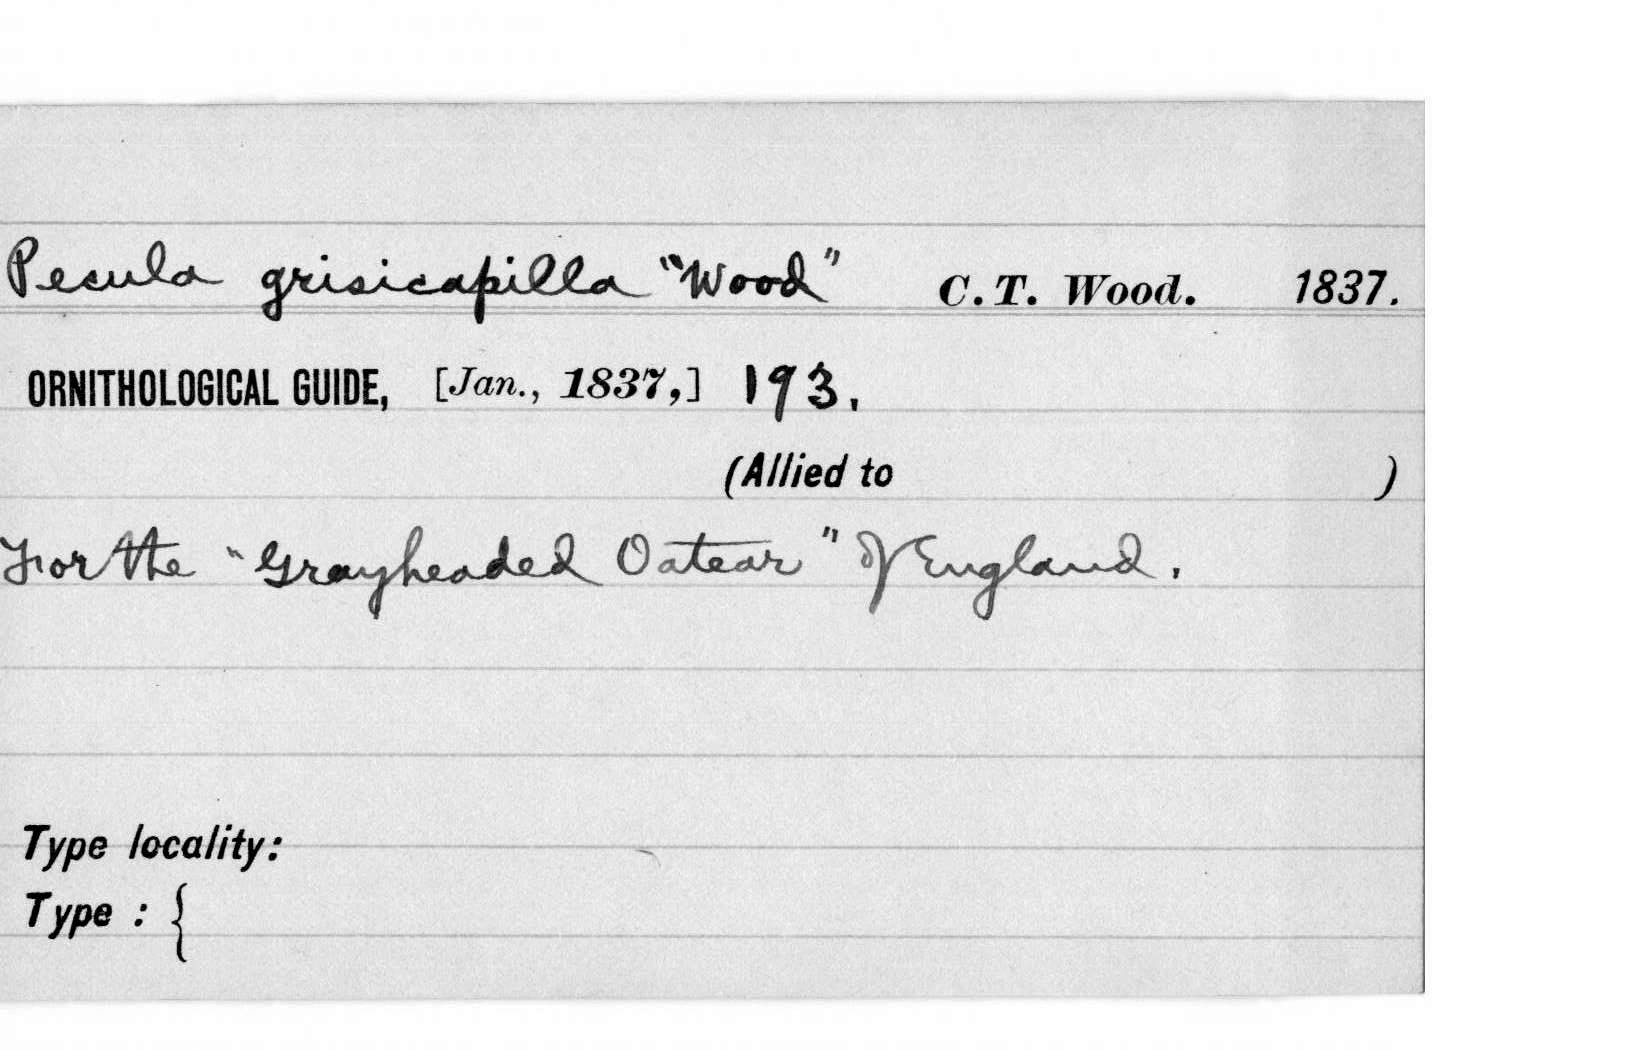 Pecula grisicapilla "Wood" C. T. Wood. 1837.
ORNITHOLOGICAL GUIDE, [Jan., 1837,] 193.
(Allied to )
For the "Grayheaded Oatear" of England.
Type locality:
Type : {